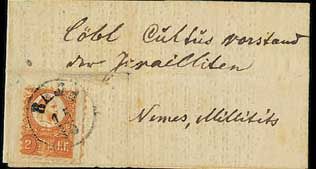 Löbl Cultus vorstand
der Israiliten
Nemes, Millitits
2